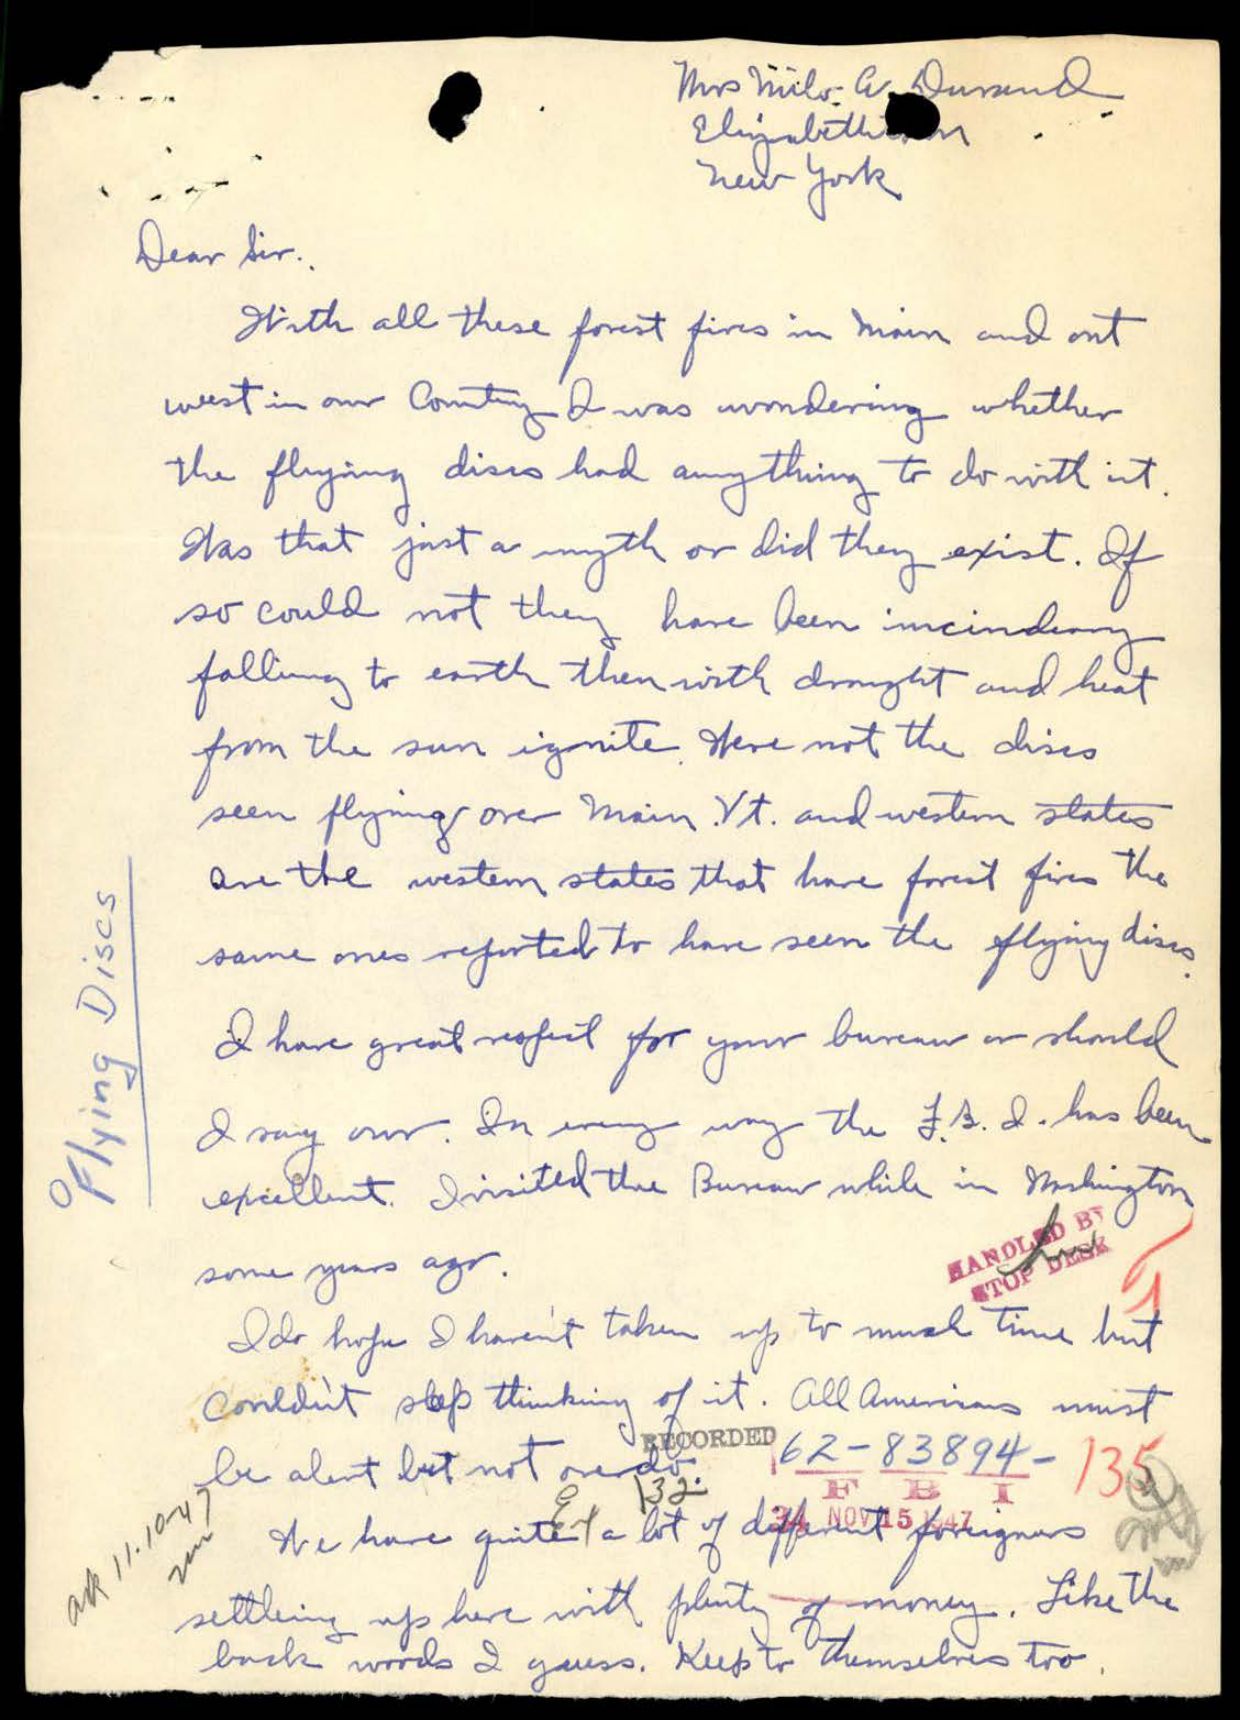 Mrs Milo A. Durand
Elizabethtown
New York
Dear Sir.
With all these forest fires in Main and out
west in our Country I was wondering whether
the flyjing discs had anything to do with it.
Was that just a myth or did they exist. If
so could not they have been incindeary
falling to earth then with drought and heat
from the sun ignite. Were not the discs
seen flying over Main. Vt. and western states
are the western states that have forest fires the
same ones reported to have seen the flying discs.
I have great respect for your bureau or should
I say our. In every way the F.B.I. has been
excellent. I visited the Bureau while in Washington
some years ago.
I do hope I haven't taken up to much time but
couldn't stop thinking of it. All Americans must
be alert but not overdo.
We have quite a lot of different foreigners
settleing up here with plenty of money. Like the
back woods I guess. Keep to themselves too.
Flying Discs
HANDLED BY
STOP DESK
RECORDED
62-83894-135
F B I
34 NOV 15 1947
132
ack 11-10-47